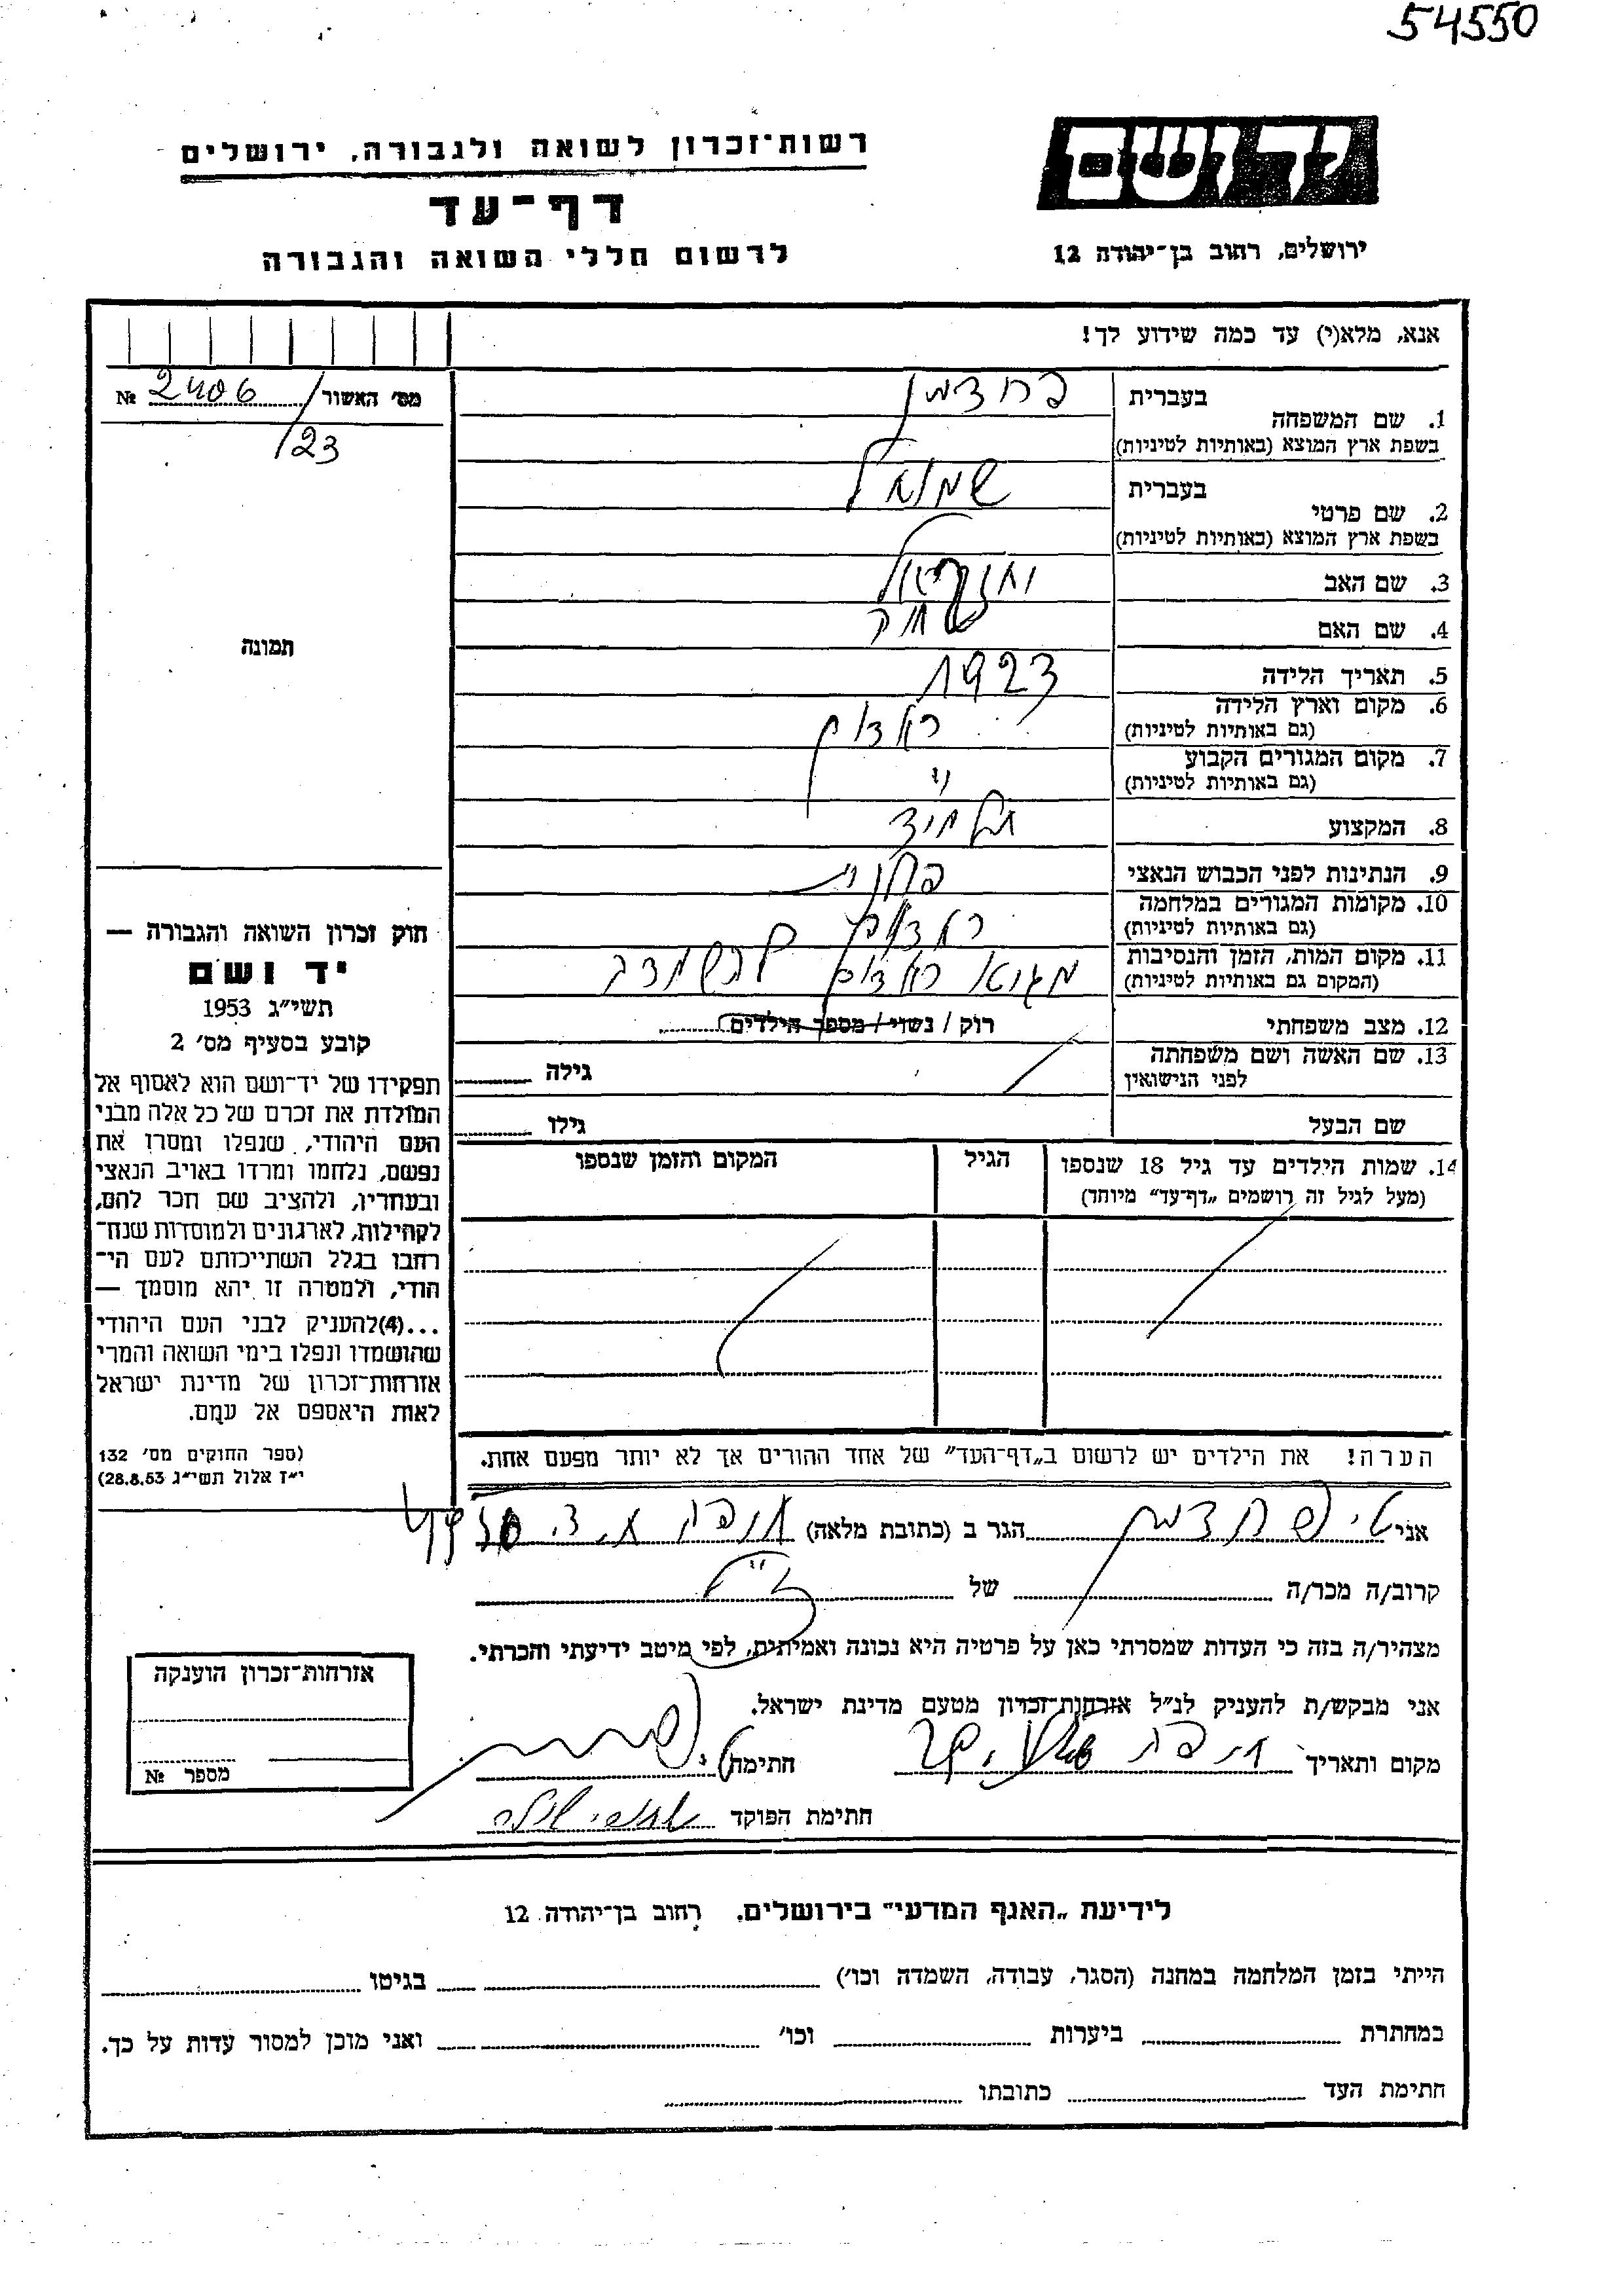 54550
יד ושם
רשות־זכרון לשואה ולגבורה, ירושלים
דף־עד
לרשום חללי השואה והגבורה
ירושלים, רחוב בן־יהודה 12
אנא, מלא(י) עד כמה שידוע לך!
מס׳ האשור 2406 №
/23
תמונה
1. שם המשפחה
בעברית
בשפת ארץ המוצא (באותיות לטיניות)
2. שם פרטי
בעברית שמואל
בשפת ארץ המוצא (באותיות לטיניות)
3. שם האב
4. שם האם
5. תאריך הלידה 1923
6. מקום וארץ הלידה ראדום
(גם באותיות לטיניות)
7. מקום המגורים הקבוע
(גם באותיות לטיניות)
8. המקצוע תלמיד
9. הנתינות לפני הכבוש הנאצי פולנית
10. מקומות המגורים במלחמה ראדום
(גם באותיות לטיניות)
11. מקום המות, הזמן והנסיבות ראדום
(המקום גם באותיות לטיניות)
12. מצב משפחתי רוק / נשוי / מספר הילדים
13. שם האשה ושם משפחתה גילה
לפני הנישואין
שם הבעל גילו
14. שמות הילדים עד גיל 18 שנספו הגיל המקום והזמן שנספו
(מעל לגיל זה רושמים „דף־עד״ מיוחד)
הערה! את הילדים יש לרשום ב„דף־העד״ של אחד ההורים אך לא יותר מפעם אחת.
חוק זכרון השואה והגבורה —
יד ושם
תשי״ג 1953
קובע בסעיף מס׳ 2
תפקידו של יד־ושם הוא לאסוף אל
המולדת את זכרם של כל אלה מבני
העם היהודי, שנפלו ומסרו את
נפשם, נלחמו ומרדו באויב הנאצי
ובעוזריו, ולהציב שם וזכר להם,
לקהילות, לארגונים ולמוסדות שנח־
רבו בגלל השתייכותם לעם הי־
הודי, ולמטרה זו יהא מוסמך —
...(4)להעניק לבני העם היהודי
שהושמדו ונפלו בימי השואה והמרי
אזרחות־זכרון של מדינת ישראל
לאות היאספם אל עמם.
(ספר החוקים מס׳ 132
י״ז אלול תשי״ג 28.8.53)
אני הגר ב (כתובת מלאה)
קרוב/ה מכר/ה של
מצהיר/ה בזה כי העדות שמסרתי כאן על פרטיה היא נכונה ואמיתית, לפי מיטב ידיעתי והכרתי.
אני מבקש/ת להעניק לנ״ל אזרחות־זכרון מטעם מדינת ישראל.
מקום ותאריך חתימה
חתימת הפוקד
אזרחות־זכרון הוענקה
מספר №
לידיעת „האגף המדעי״ בירושלים, רחוב בן־יהודה 12
הייתי בזמן המלחמה במחנה (הסגר, עבודה, השמדה וכו׳) בגיטו
במחתרת ביערות וכו׳ ואני מוכן למסור עדות על כך.
חתימת העד כתובתו